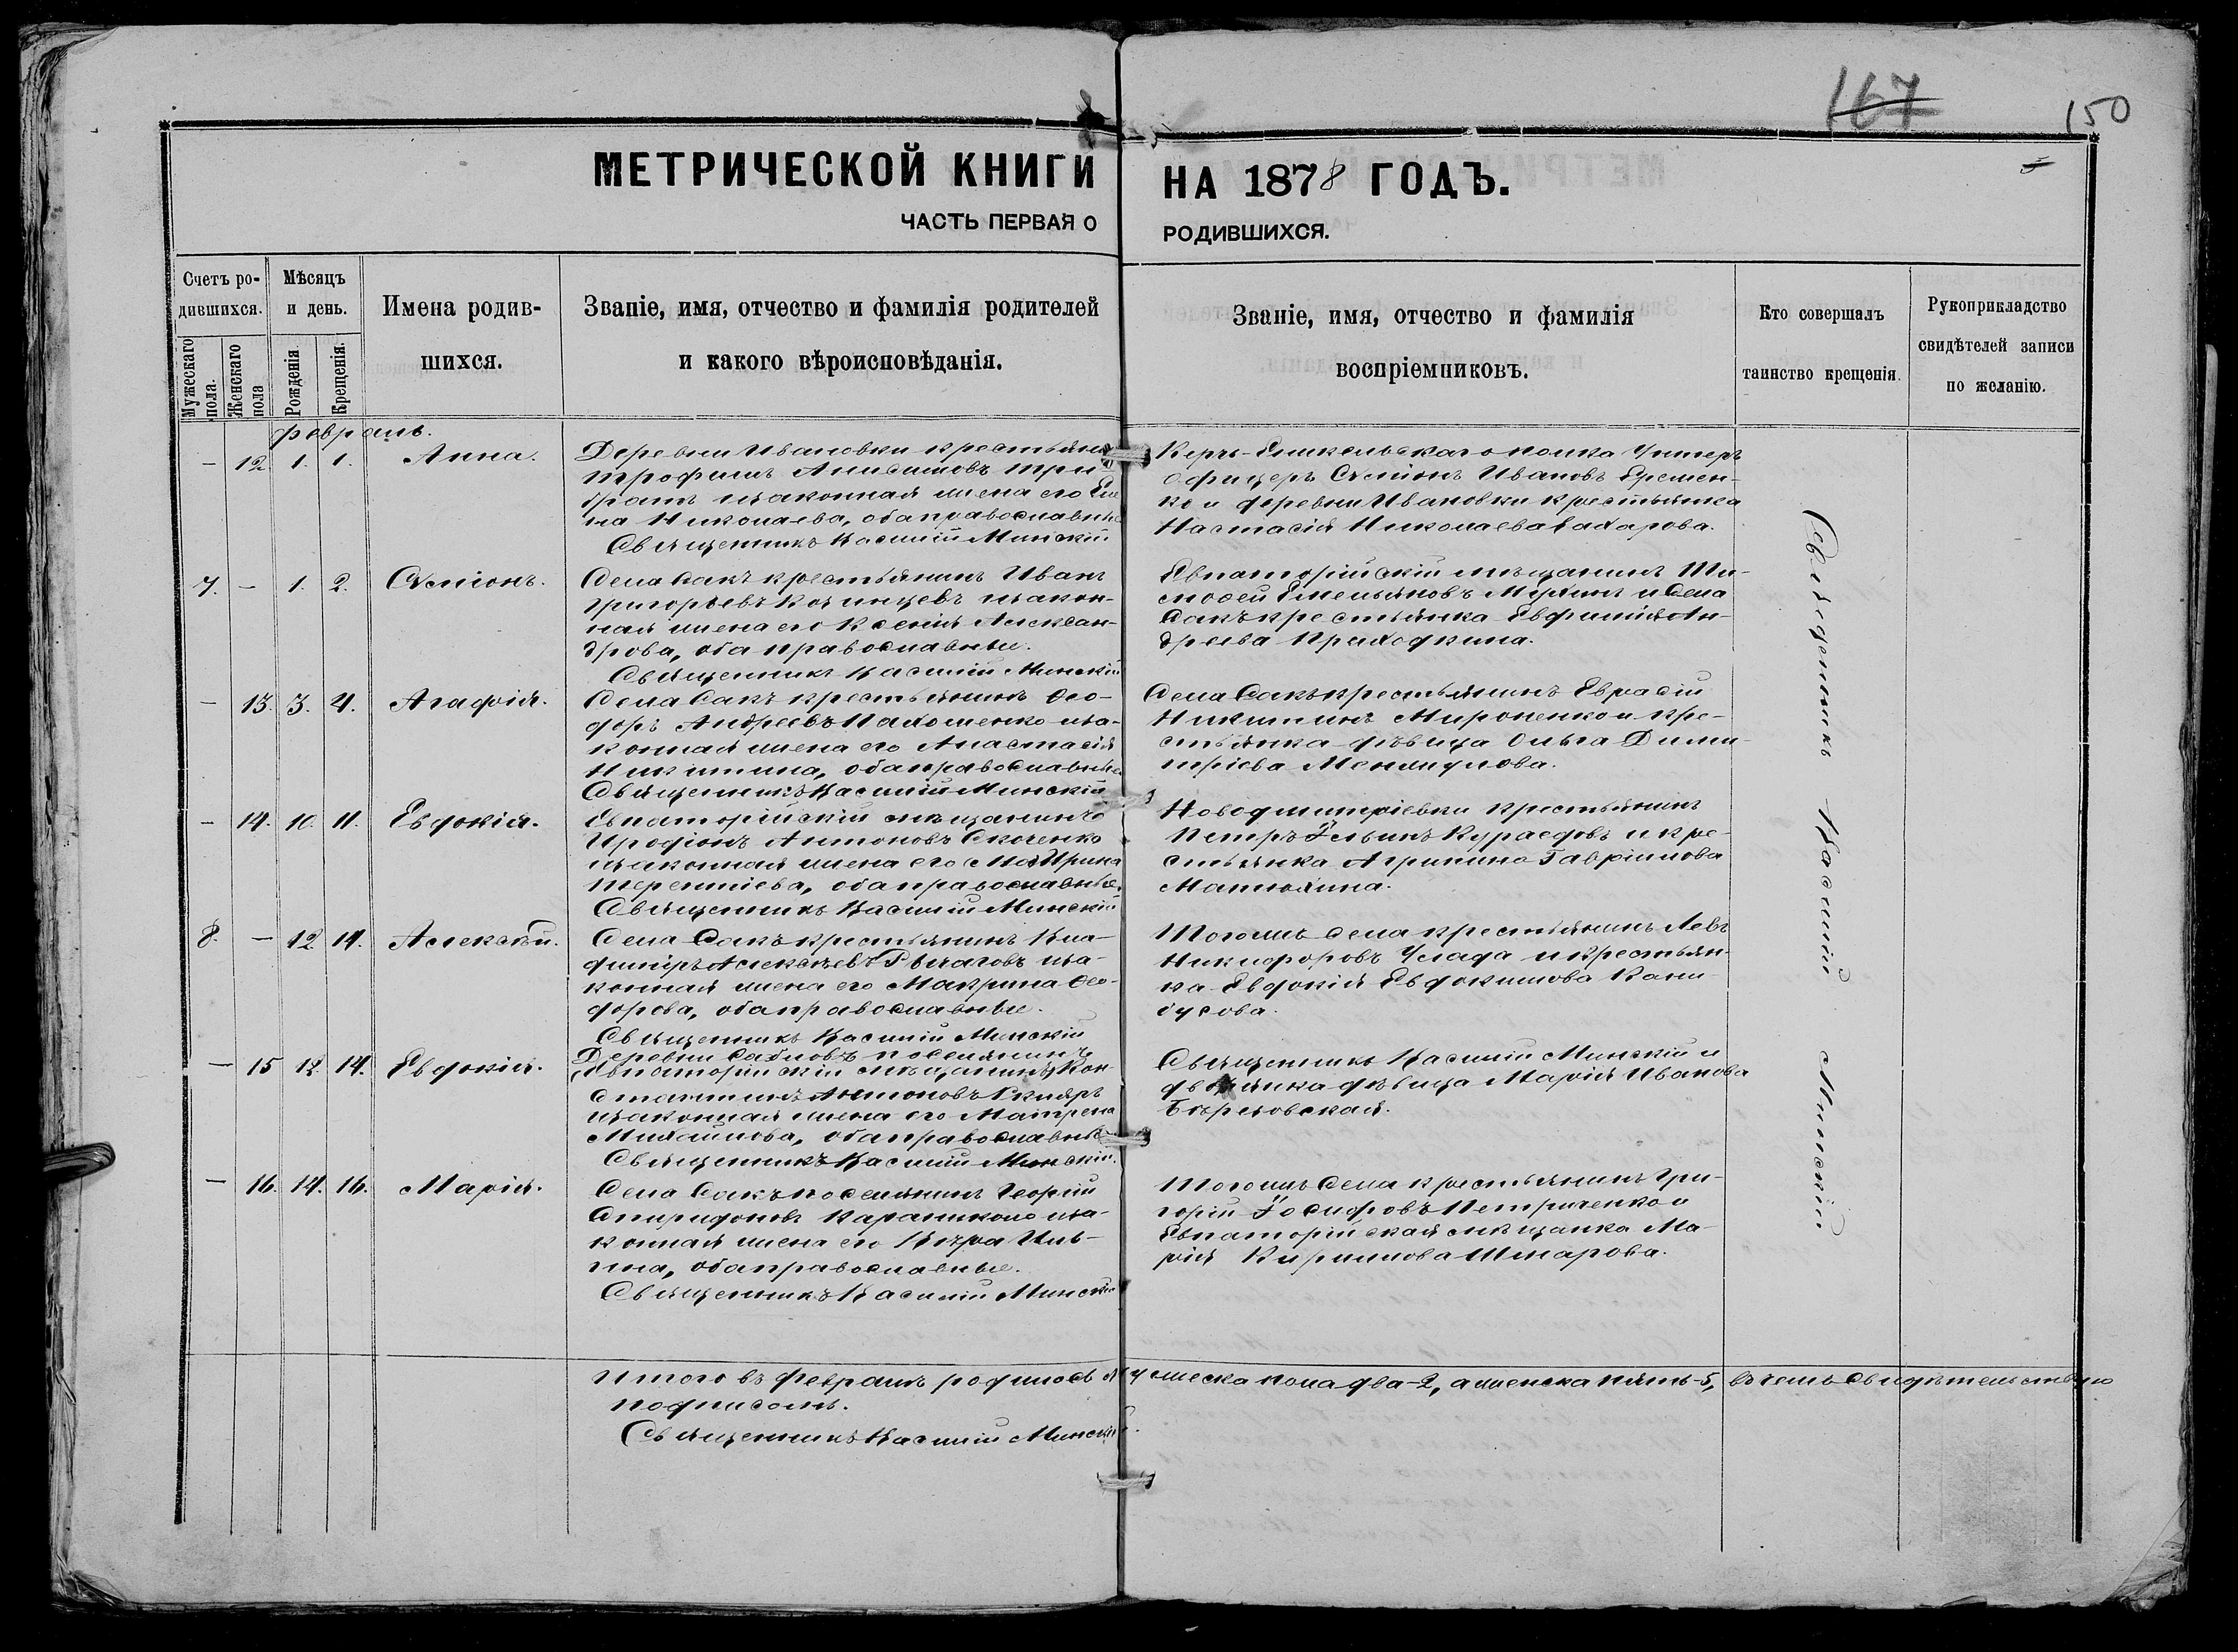 167
150
МЕТРИЧЕСКОЙ КНИГИ НА 1878 ГОДЪ.
ЧАСТЬ ПЕРВАЯ О РОДИВШИХСЯ.
Счетъ ро-
дившихся.
Мужескаго пола.
Женскаго пола
Мѣсяцъ
и день.
Рожденія.
Крещенія.
Имена родив-
шихся.
Званіе, имя, отчество и фамилія родителей
и какого вѣроисповѣданія.
Званіе, имя, отчество и фамилія
воспріемниковъ.
Кто совершалъ
таинство крещенія.
Рукоприкладство
свидѣтелей записи
по желанію.
Февраль.
– 12 1. 1. Анна.
Деревни Ивановки крестьянинъ
Трофимъ Анисимовъ
законная жена его Еле-
на Николаева, оба православные
Священникъ Василій Минскій
Керчь-Еникольскаго полка Унтеръ
офицеръ Сѵмеонъ Ивановъ Еремен-
ко и деревни Ивановки крестьянка
Настасія Николаева Захарова.
7. – 1. 2. Сѵмеонъ.
Села Сакъ крестьянинъ Иванъ
Григорьевъ закон-
ная жена его Ксенія Алексан-
дрова, оба православные.
Священникъ Василій Минскій
Евпаторійскій мѣщанинъ Ти-
мофей Емельяновъ и Села
Сакъ крестьянка Евфимія Ан-
дреева Приходкина.
– 13. 3. 4. Агафія.
Села Сакъ крестьянинъ Ѳео-
доръ Андреевъ Пахоменко за-
конная жена его Анастасія
Никитина, оба православные
Священникъ Василій Минскій
Села Сакъ крестьянинъ
Никитинъ Мироненко и кре-
стьянка дѣвица Ольга Дими-
тріева
– 14. 10. 11. Евдокія.
Евпаторійскій мѣщанинъ
Иродіонъ Антоновъ
законная жена его Ирина
Терентіева, оба православные.
Священникъ Василій Минскій
Новодимитріевки крестьянинъ
Петръ Ильинъ Кураедовъ и кре-
стьянка Агрипина Гавріилова
Матюхина.
8. – 12 14. Алексѣй.
Села Сакъ крестьянинъ Вла-
диміръ Алексѣевъ за-
конная жена его Макрина Ѳео-
дорова, оба православные.
Священникъ Василій Минскій
Тогожъ села крестьянинъ Левъ
Никифоровъ Услада и крестьян-
ка Евдокія Евдокимова
– 15 12. 14. Евдокія.
Деревни поселянинъ
Евпаторійскій мѣщанинъ Кон-
стантинъ Антоновъ
законная жена его Матрена
Михайлова, оба православные
Священникъ Василій Минскій.
Священникъ Василій Минскій и
дворянка дѣвица Марія Иванова
Березовская.
– 16. 14. 16. Марія.
Села Сакъ поселянинъ Георгій
Спиридоновъ за-
конная жена его Вѣра Иль-
ина, оба православные.
Священникъ Василій Минскій
Тогожъ села крестьянинъ Гри-
горій Іосифовъ Петриченко и
Евпаторійская мѣщанка Ма-
рія Кирилова Шмарова.
Священникъ Василій Минскій
Итого въ Февралѣ родилось мужеска пола два-2, а женска пять-5, въ чемъ свидѣтельствую
подписомъ.
Священникъ Василій Минскій.